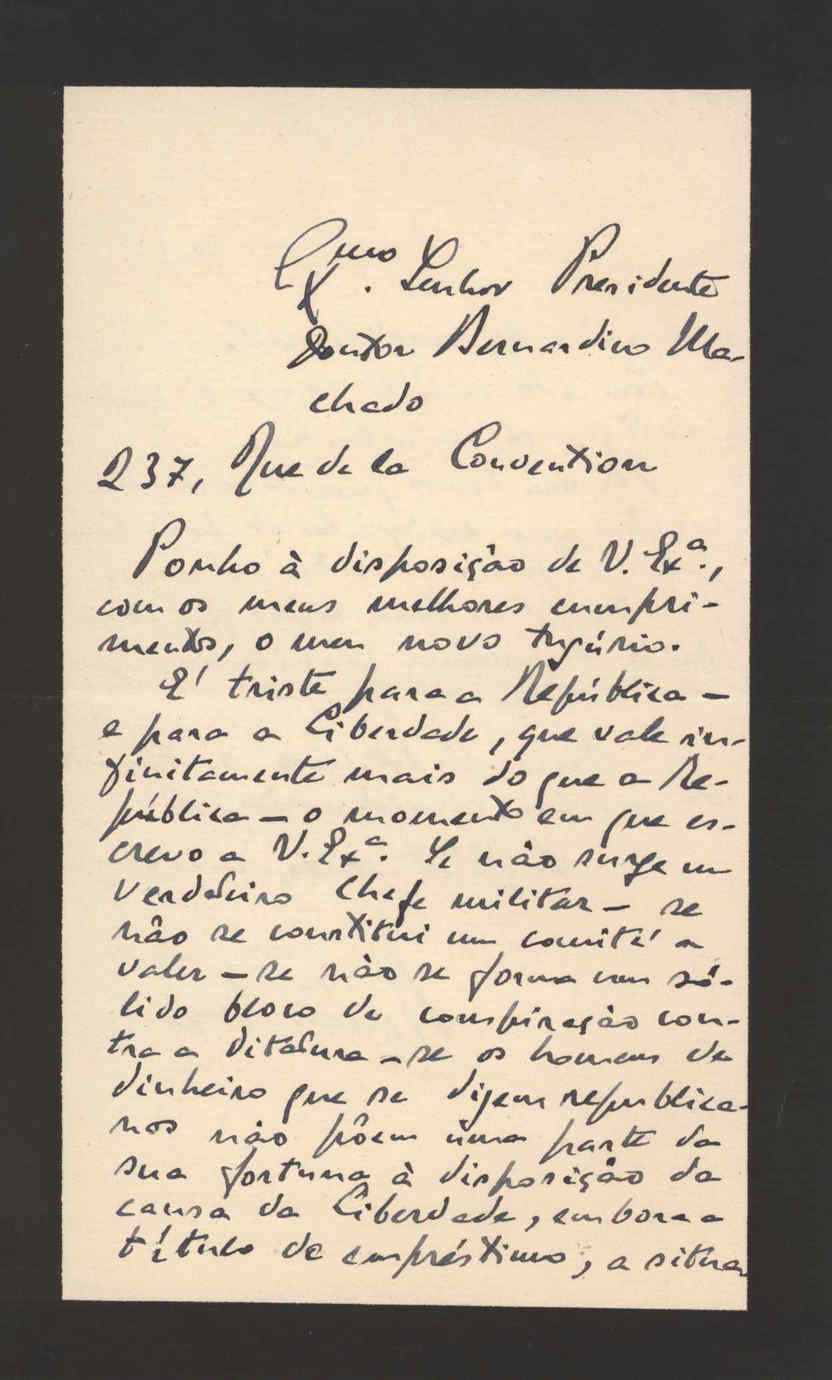 Exmo. Senhor Presidente
Doutor Bernardino Ma-
chado
237, Rue de la Convention
Ponho à disposição de V. Exª.,
com os meus melhores cumpri-
mentos, o meu novo tugúrio.
É triste para a República —
e para a Liberdade, que vale in-
finitamente mais do que a Re-
pública — o momento em que es-
crevo a V. Exª. Se não surge um
verdadeiro Chefe militar — se
não se constitui um comité a
valer — se não se forma um só-
lido bloco de conspiração con-
tra a ditadura — se os homens de
dinheiro que se dizem republica-
nos não põem uma parte da
sua fortuna à disposição da
causa da Liberdade, embora a
título de empréstimo, a situa